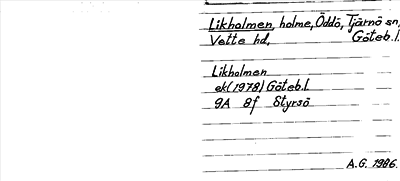 Likholmen, holme, Öddö, Tjärnö sn,
Vette hd, Göteb.l.
Likholmen
ek (1978) Göteb.l.
9A 8f Styrsö
A.G. 1986.